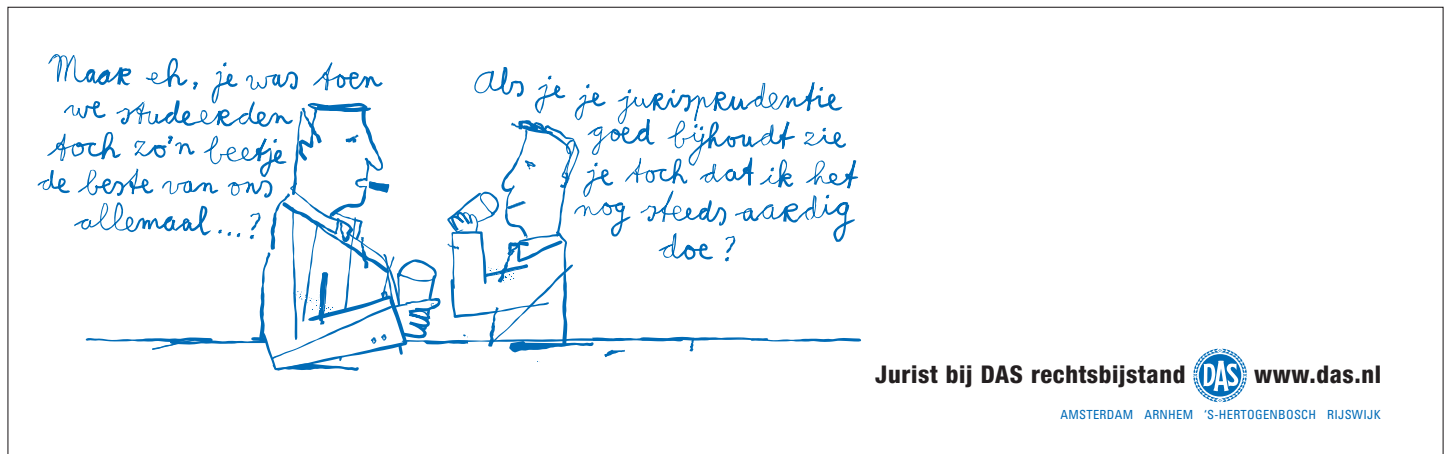 Maar eh, je was toen
we studeerden
toch zo'n beetje
de beste van ons
allemaal...?
Als je je jurisprudentie
goed bijhoudt zie
je toch dat ik het
nog steeds aardig
doe?
Jurist bij DAS rechtsbijstand DAS www.das.nl
AMSTERDAM ARNHEM 'S-HERTOGENBOSCH RIJSWIJK